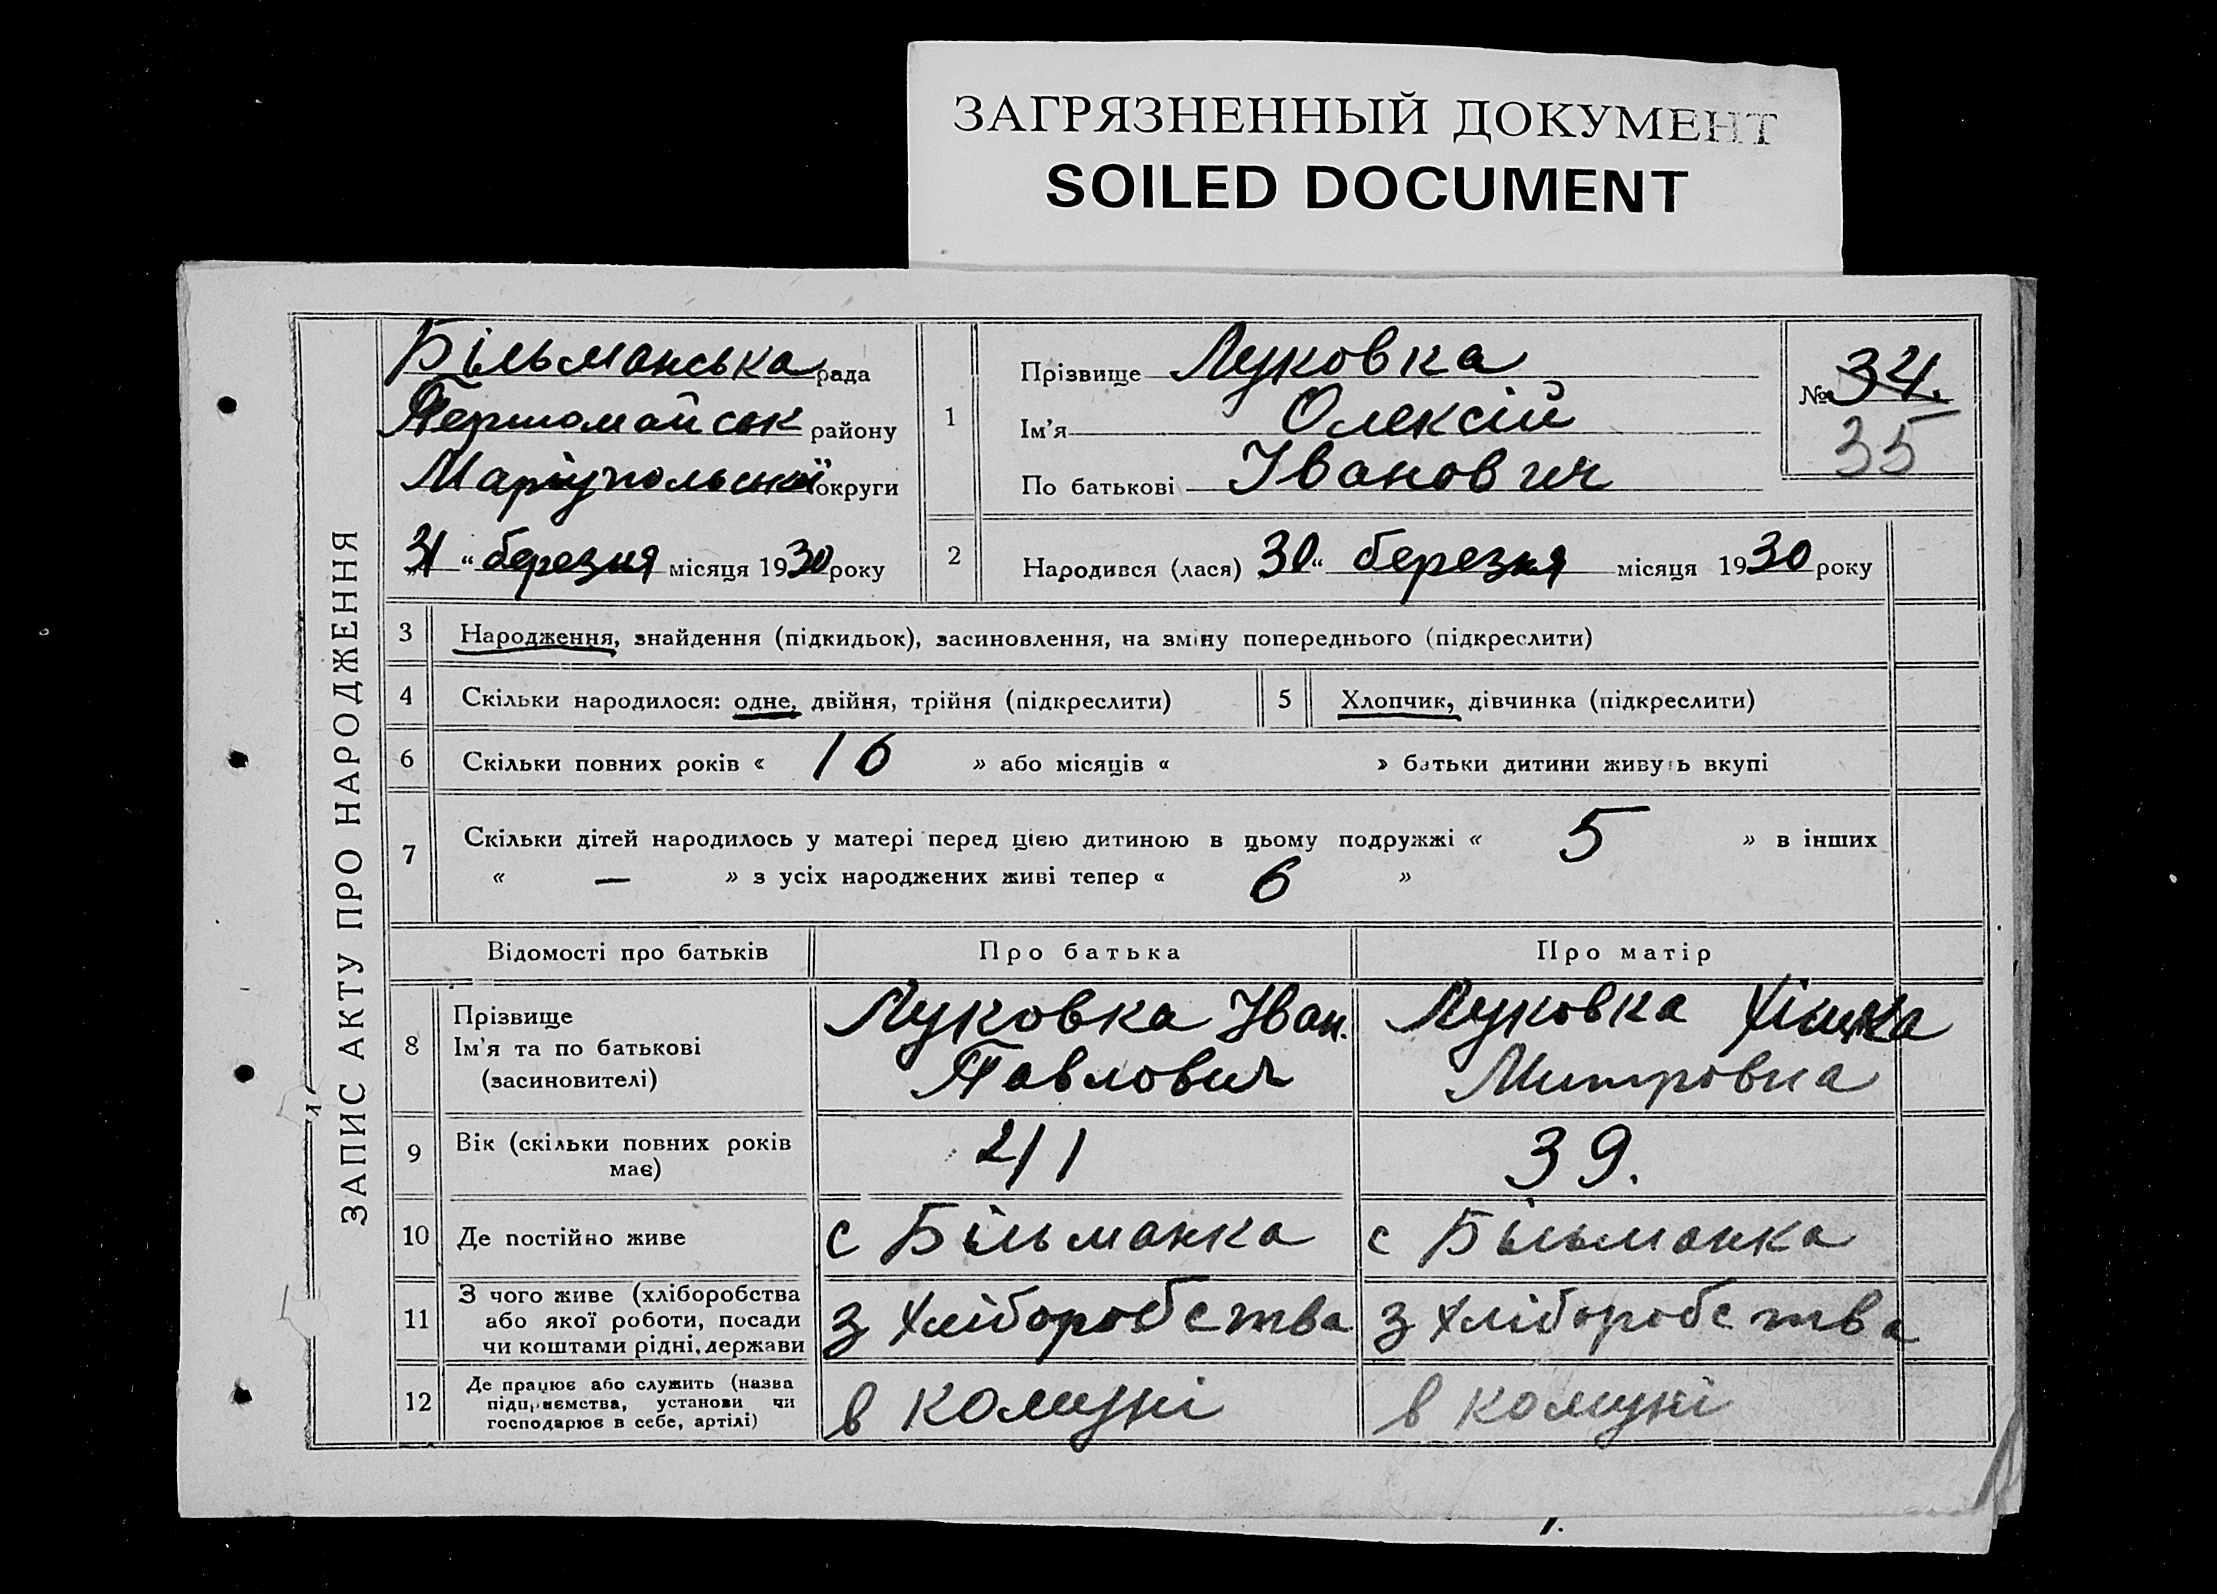 ЗАГРЯЗНЕННЫЙ ДОКУМЕНТ
SOILED DOCUMENT
ЗАПИС АКТУ ПРО НАРОДЖЕННЯ
Більманська рада
Першомайськ району
Маріупольської округи
31 “ березня місяця 1930 року
1
Прізвище Луковка
Ім’я Олексій
По батькові Іванович
№ 34.
35
2 Народився (лася) 30 “ березня місяця 1930 року
3 Народження, знайдення (підкидьок), засиновлення, на зміну попереднього (підкреслити)
4 Скільки народилося: одне, двійня, трійня (підкреслити) 5 Хлопчик, дівчинка (підкреслити)
6 Скільки повних років « 16 » або місяців « » батьки дитини живуть вкупі
7 Скільки дітей народилось у матері перед цією дитиною в цьому подружжі « 5 » в інших
« — » з усіх народжених живі тепер « 6 »
Відомості про батьків Про батька Про матір
8 Прізвище
Ім’я та по батькові
(засиновителі)
Луковка Іван.
Павлович
Луковка
Митровна
9 Вік (скільки повних років
має)
41
39.
10 Де постійно живе с Більманка с Більманка
11 З чого живе (хліборобства
або якої роботи, посади
чи коштами рідні, держави
з хліборобства з хліборобства
12 Де працює або служить (назва
підприємства, установи чи
господарює в себе, артілі)
в комуні в комуні